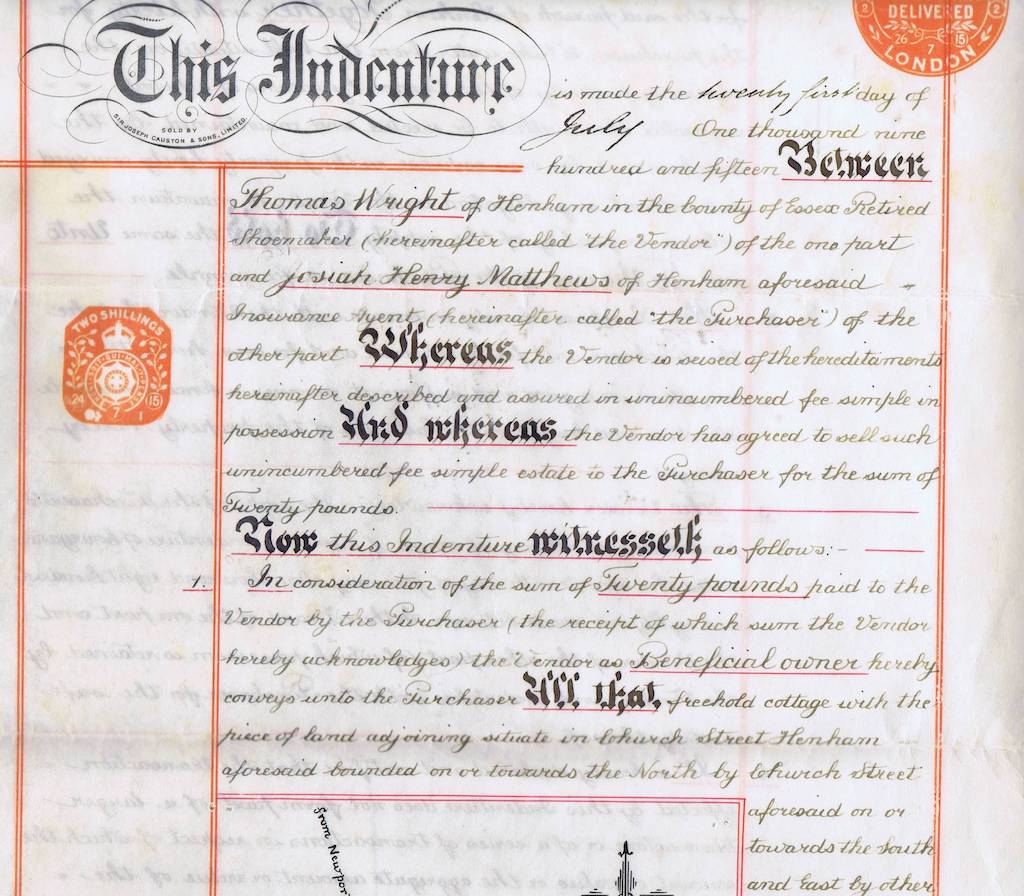 This Indenture
SOLD BY
SIR JOSEPH CAUSTON & SONS, LIMITED.
DELIVERED
2 2
26 7 15
LONDON
is made the twenty first day of
July One thousand nine
hundred and fifteen Between
Thomas Wright of Henham in the County of Essex Retired
Shoemaker (hereinafter called "the Vendor") of the one part
and Josiah Henry Matthews of Henham aforesaid -
Insurance Agent (hereinafter called "the Purchaser") of the
other part Whereas the Vendor is seised of the hereditaments
hereinafter described and assured in unincumbered fee simple in
possession And whereas the Vendor has agreed to sell such
unincumbered fee simple estate to the Purchaser for the sum of
Twenty pounds.
Now this Indenture witnesseth as follows:-
1. In consideration of the sum of Twenty pounds paid to the
Vendor by the Purchaser (the receipt of which sum the Vendor
hereby acknowledges) the Vendor as Beneficial owner hereby
conveys unto the Purchaser All that freehold cottage with the
piece of land adjoining situate in Church Street Henham
aforesaid bounded on or towards the North by Church Street
aforesaid on or
towards the South
and East by other
TWO SHILLINGS
24 7 15
from Newpor